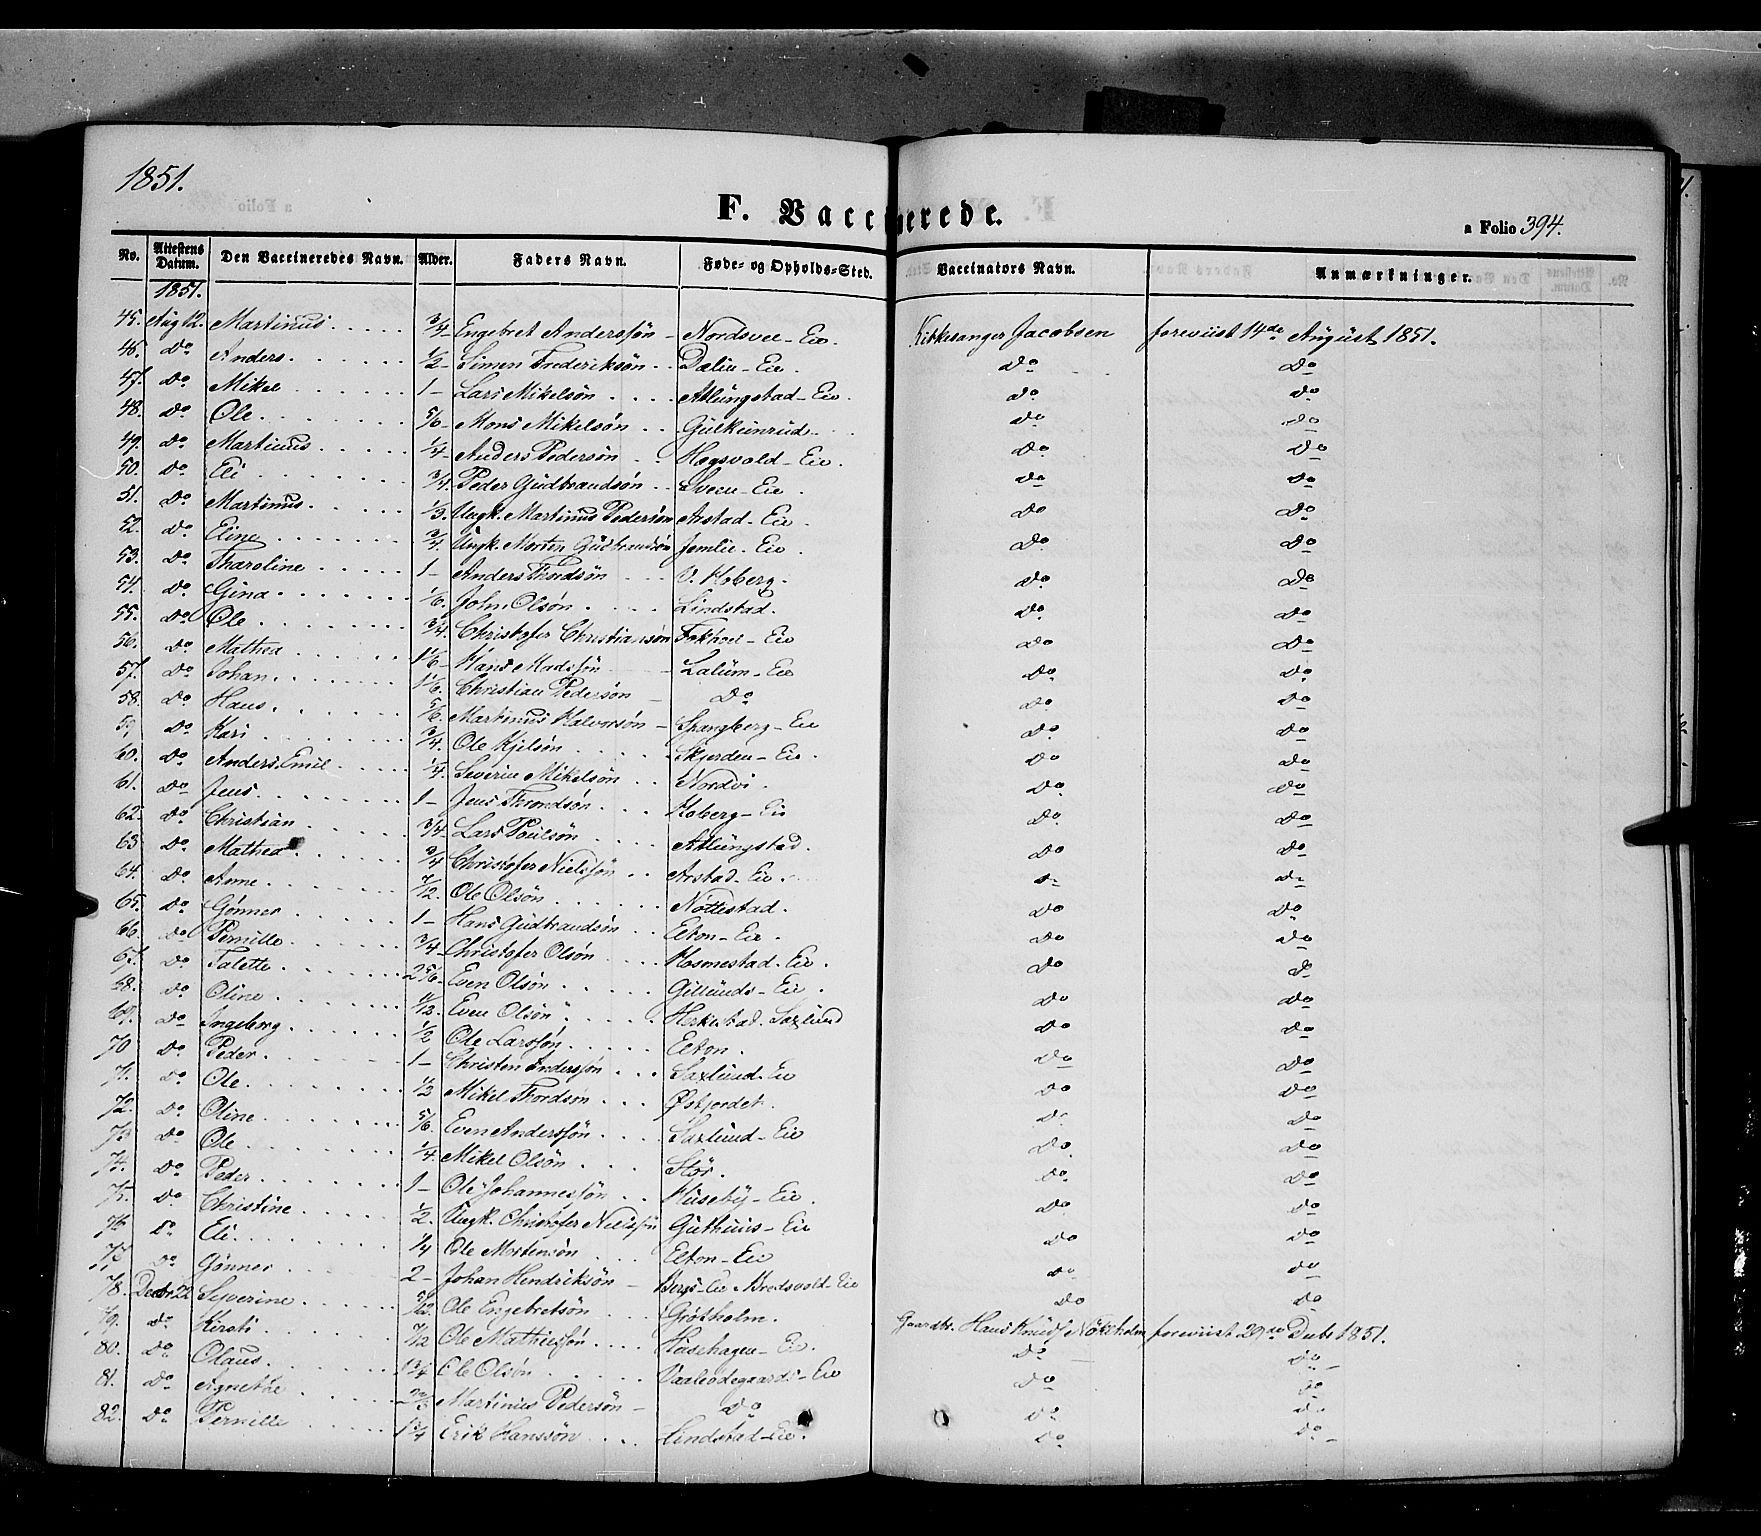 1851.
F. Vaccinerede.
a Folio 394.
No. Attestens Datum. Den Vaccineredes Navn. Alder. Faders Navn. Føde- og Opholds-Sted. Vaccinators Navn. Anmærkninger.
1851.
45. Aug 12. Martinus 3/4 Engebret Anderssøn Nordsvee-Eie Kirkesanger Jacobsen foreviist 14de August 1851.
46. Do Anders 1/2 Simen Frederiksøn Dælin-Eie. Do Do
47. Do Mikel 1 Lars Mikelsøn Atlungstad-Eie. Do Do
48. Do Ole 5/6 Mons Mikelsøn Do Do
49. Do Martinus 1/4 Anders Pedersøn Hogsvold-Eie. Do Do
50. Do Eli 3/4 Peder Gudbrandsøn Sveen-Eie. Do Do
51. Do Martinus 1/3 Ungk. Martinus Pedersøn Arstad-Eie Do Do
52. Do Eline 3/4 Ungk. Morten Gudbrandsøn Jemlie-Eie. Do Do
53. Do Tharoline 1 Anders Thordsøn V. Hoberg. Do Do
54. Do Gina 1/6 John Olsøn Lindstad. Do Do
55. Do Ole 3/4 Christofer Christiansøn Fokhoel-Eie Do Do
56. Do Mathea 1 1/6 Hans Madssøn Lalum-Eie Do Do
57. Do Johan 1 1/6 Christian Pedersøn Do Do Do
58. Do Hans 5/6 Martinus Halvorsøn Spangberg-Eie Do Do
59. Do Kari 3/4 Ole Kjelsøn Skjerden-Eie. Do Do
60. Do Anders Emil 1/4 Severin Mikelsøn Nordvi. Do Do
61. Do Jens 1 Jens Throndsøn Hoberg-Eie Do Do
62. Do Christian 3/4 Lars Poulsøn Atlungstad. Do Do
63. Do Mathea 3/4 Christofer Nielssøn Arstad-Eie. Do Do
64. Do Anne 7/12 Ole Olsøn Nøttestad. Do Do
65. Do Gønner 1 Hans Gudbrandsøn Elton-Eie. Do Do
66. Do Pernille 3/4 Christofer Olsøn Hosmestad-Eie. Do Do
67. Do Talette 2 5/6 Even Olsøn Gillunds-Eie. Do Do
68. Do Oline Even Olsøn Saxlund Do Do
69. Do Ingeborg 1/2 Ole Larssøn Elton. Do Do
70 Do Peder 1 Christen Anderssøn Saxlund-Eie Do Do
71. Do Ole 1/2 Mikel Thordsøn Østjordet. Do Do
72. Do Oline 5/6 Even Anderssøn Saxlund-Eie Do Do
73 Do Ole 1/4 Mikel Olsøn Stør. Do Do
74. Do Peder 1 Ole Johannessøn Huseby-Eie. Do Do
75. Do Christine 1/2 Ungk. Christofer Nielssøn Guthuus-Eie Do Do
76 Do Eli 1/4 Ole Mortensøn Elton-Eie Do Do
77 Do Gønner 2 Johan Hendriksøn Bergs-Eie Bredsvold-Eie Do Do
78. Decbr 22 Severine 5/12 Ole Engebretsøn Grøtholm. Gaardbr. Hans Knuds. Nökleholm foreviist 29de Decbr 1851.
79. Do Kirsti 7/12 Ole Mathiessøn Hosehagen-Eie. Do Do
80. Do Olaus 1 3/4 Ole Olsøn Vaaleodegaards-Eie Do Do
81. Do Agnethe 2 2/3 Martinus Pedersøn Do Do Do
82. Do Pernille 1 3/4 Erik Hanssøn Lindstad-Eie. Do Do